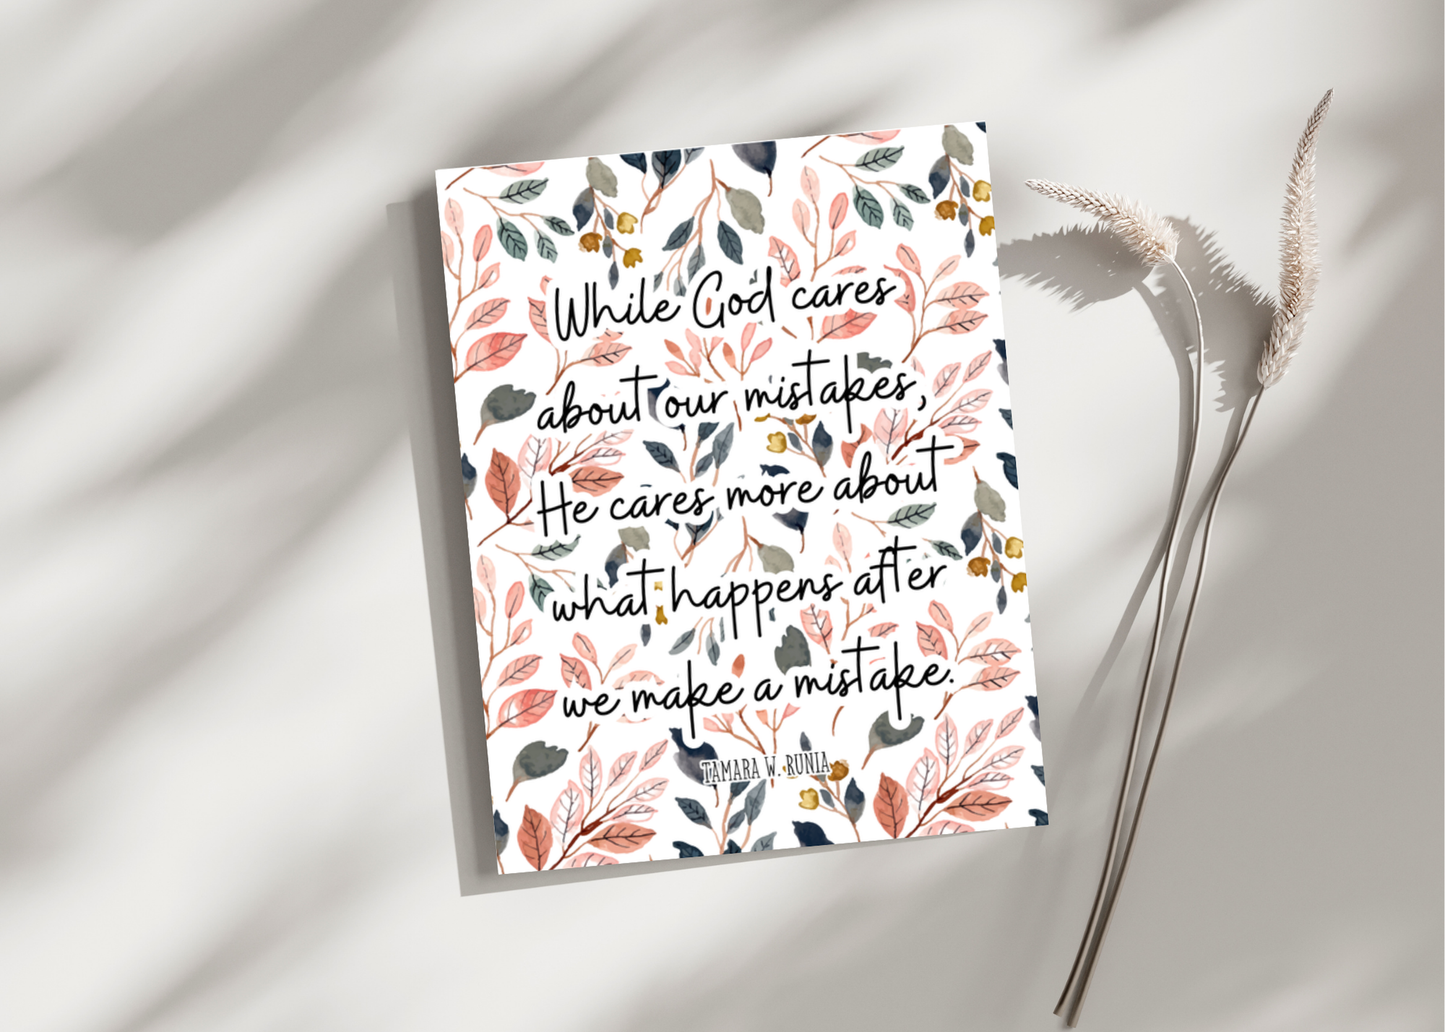 While God cares
about our mistakes,
He cares more about
what happens after
we make a mistake.
TAMARA W. RUNIA